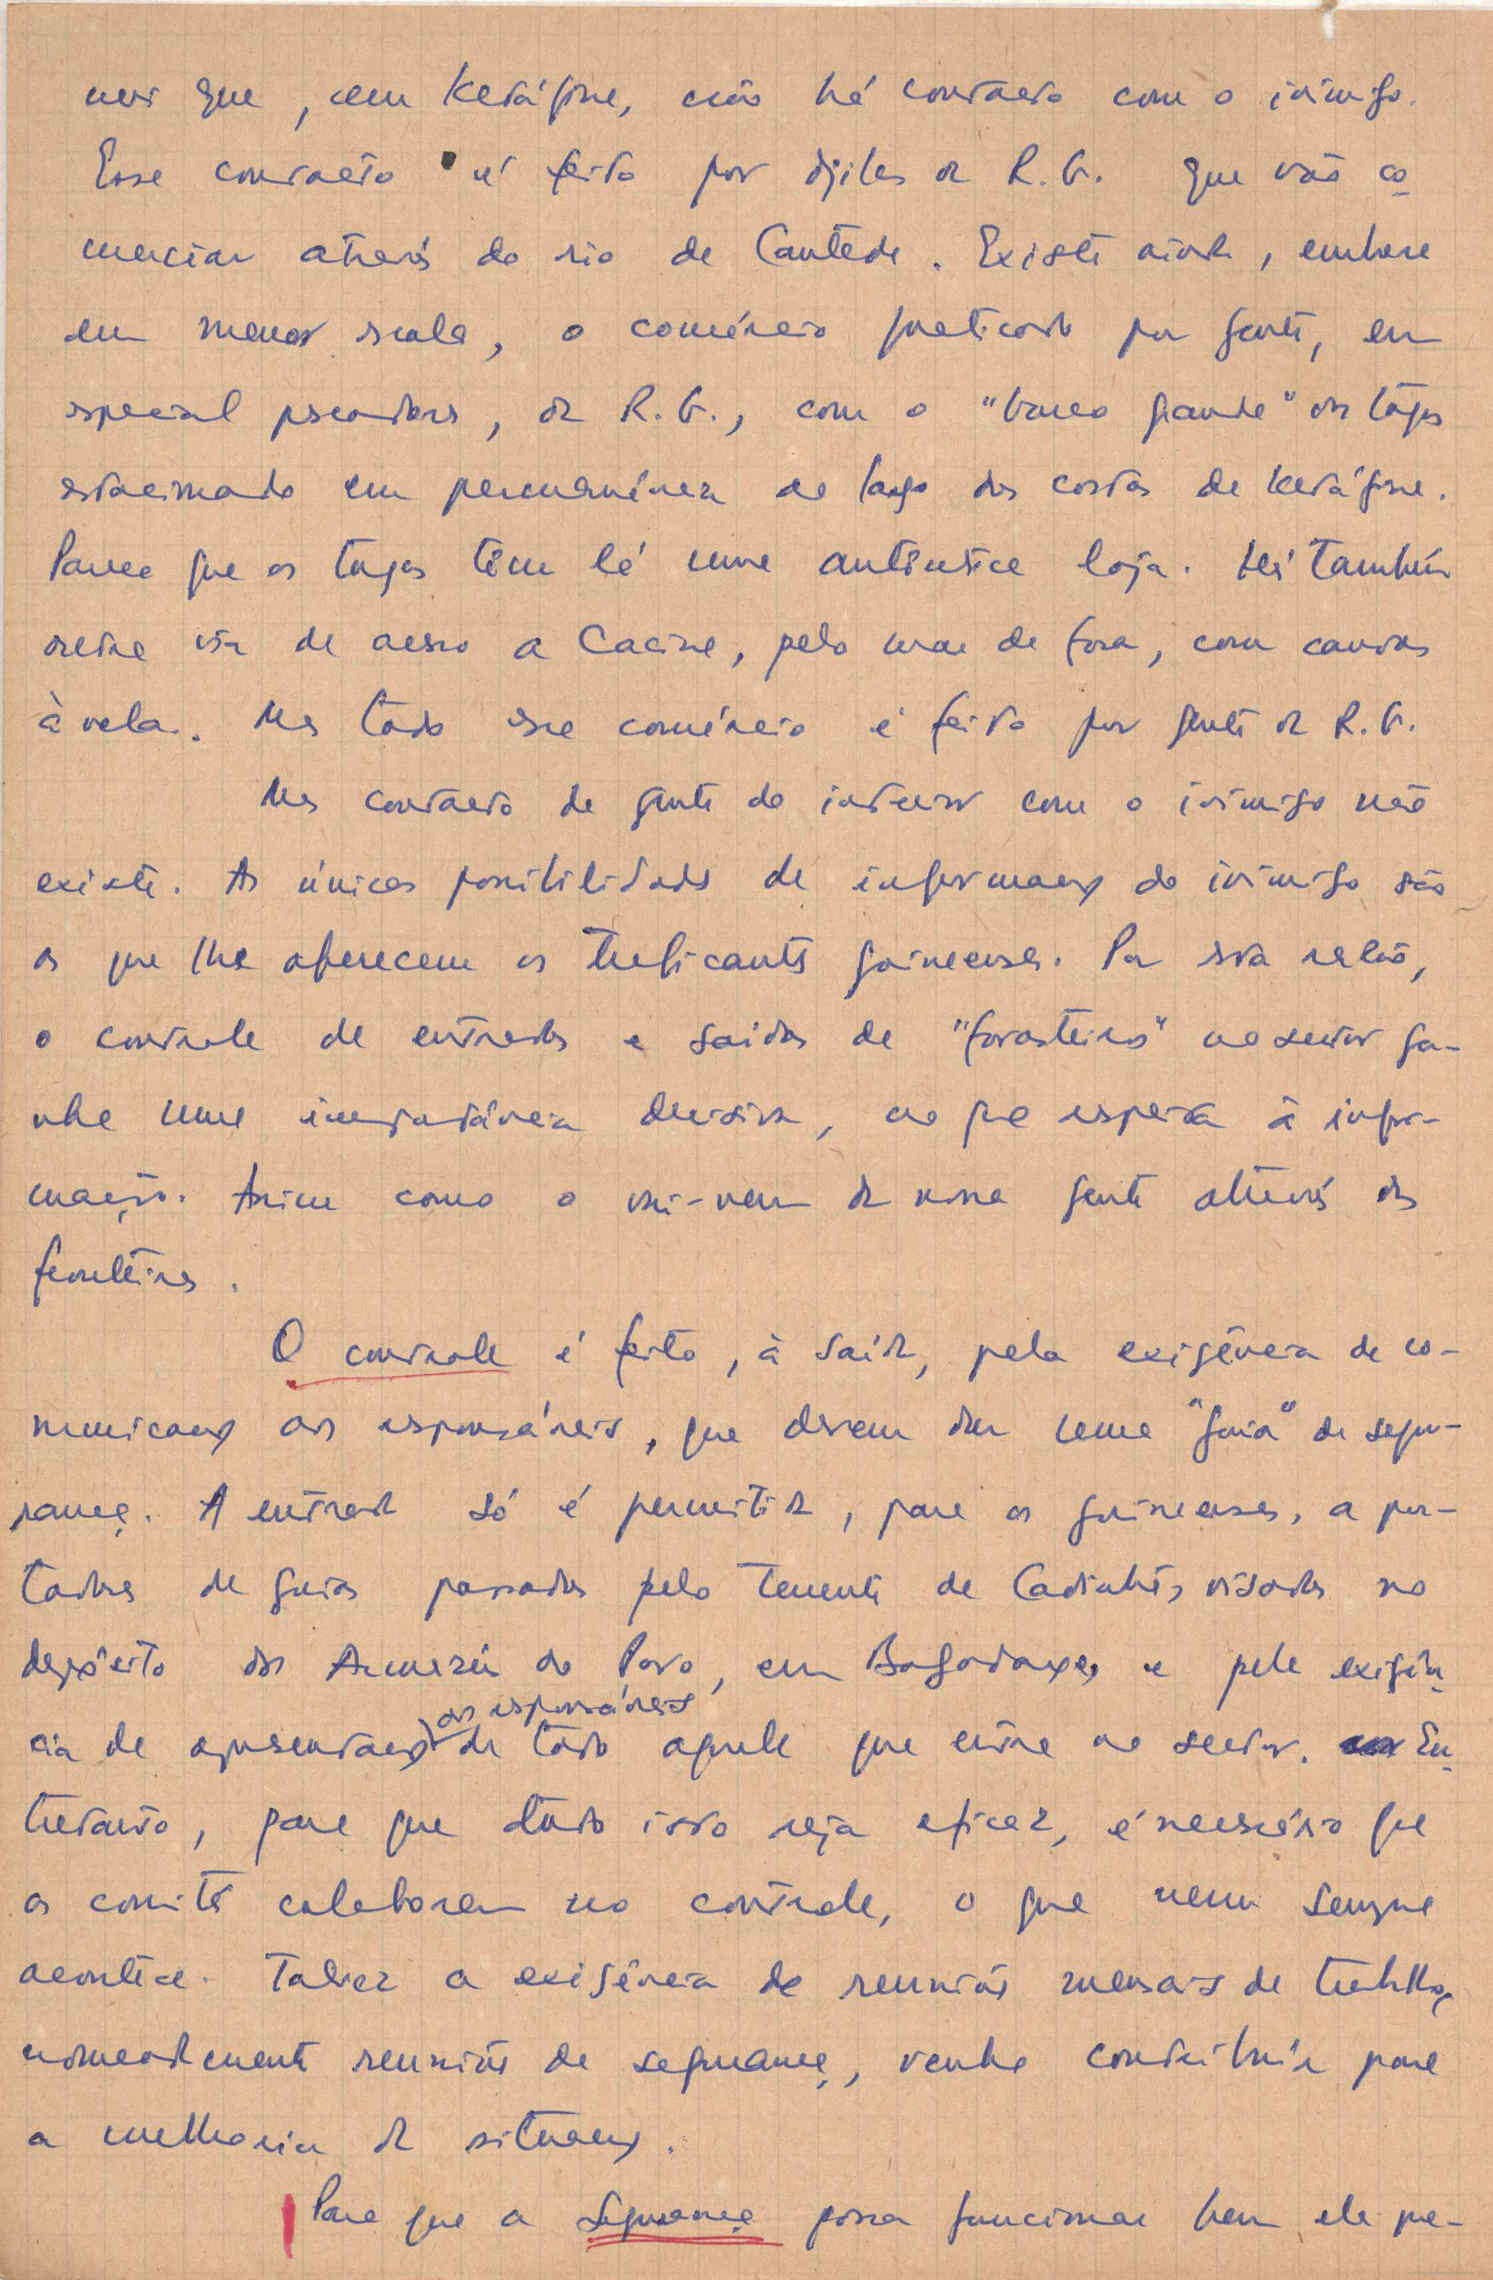 que, em Ketáfine, não há contacto com o inimigo.
Esse contacto é feito por djilas da R.G. que vão co-
merciar através do rio de Cantede. Existe ainda, embora
em menor escala, o comércio praticado por gente, em
especial pescadores, da R.G., com o "barco grande" dos tugas
estacionado em permanência ao largo das costas de Ketáfine.
Parece que os tugas têm lá uma autêntica loja. Há também
outra via de acesso a Cacine, pelo mar de fora, com canoas
à vela. Mas todo esse comércio é feito por gente da R.G.
Mas contacto de gente do interior com o inimigo não
existe. As únicas possibilidades de informação do inimigo são
as que lhe oferecem os traficantes guineenses. Por esta razão,
o controle de entradas e saídas de "forasteiros" no sector ga-
nha uma importância decisiva, no que respeita à infor-
mação. Assim como o vai-vem da nossa gente através das
fronteiras.
O controle é feito, à saída, pela exigência de co-
municação aos responsáveis, que devem dar uma "guia" de segu-
rança. A entrada só é permitida, para os guineenses, a por-
tadores de guias passadas pelo tenente de visadas no
depósito dos Armazéns do Povo, em e pela exigên-
cia de apresentação aos responsáveis de todo aquele que entre no sector. En-
tretanto, para que tudo isso seja eficaz, é necessário que
os comités colaborem no controle, o que nem sempre
acontece. Talvez a exigência de reuniões mensais de trabalho,
nomeadamente reuniões de segurança, venha contribuir para
a melhoria da situação.
Para que a Segurança possa funcionar bem ela pre-